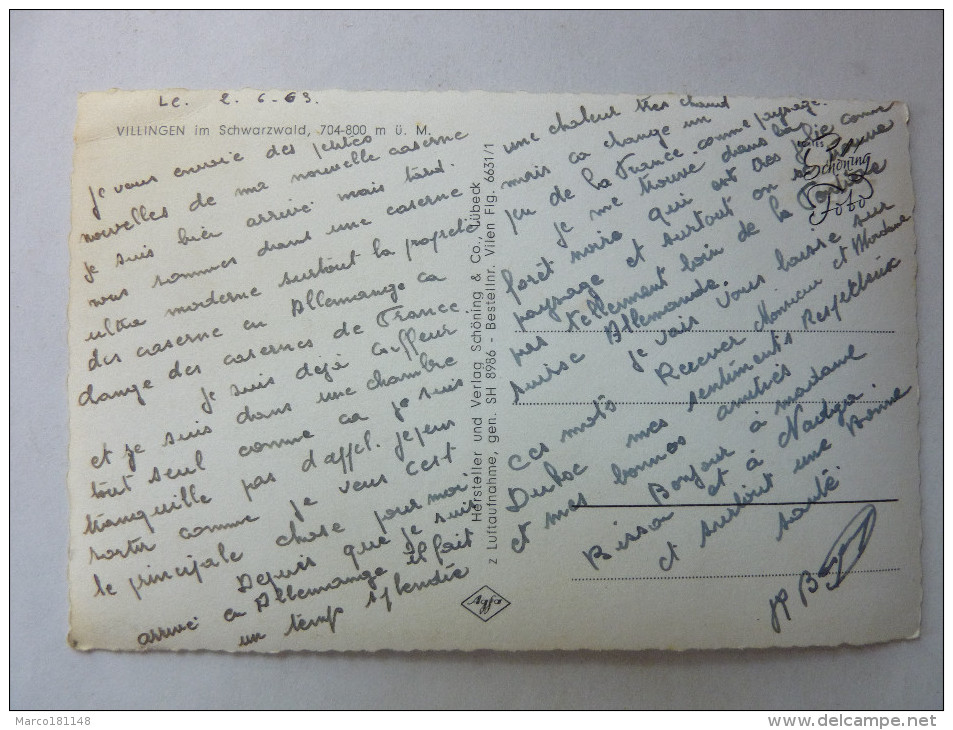 Le. 2.6.63.
VILLINGEN im Schwarzwald, 704-800 m ü. M.
je vous envoie des petites
nouvelles de ma nouvelle caserne
je suis bien arrivé mais tard.
nous sommes dans une caserne
ultra moderne surtout la propreté
des caserne en Allemange ca
change des casernes de France.
je suis déjà
et je suis dans une chambre
tout seul comme ca je suis
tranquille pas d'appel. je peus
sortir comme je veus c'est
le principale chose pour moi
Depuis que je suis
arrivé en Allemange il fait
un temp splendide
Hersteller und Verlag Schöning & Co., Lübeck
z Luftaufnahme, gen. SH 8986 - Bestellnr. Vilien Flg. 6631/1
Agfa
une chaleur tres chaud
mais ca change un
peu de la France comme paysage.
je me trouve dans la
forêt noire qui est très jolie comme
paysage et surtout on se trouve
pas tellement loin de la
suisse Allemande.
je vais vous laisse sur
ces mots Recever Monsieur et Madame
Duhoc mes sentiments Respectueux
et mes bonnes amitiés
Bonjour à madame
Bisson et à Nadyia
et surtout une Bonne
santé.
JP
Schöning
Foto
Marco181148
www.delcampe.net